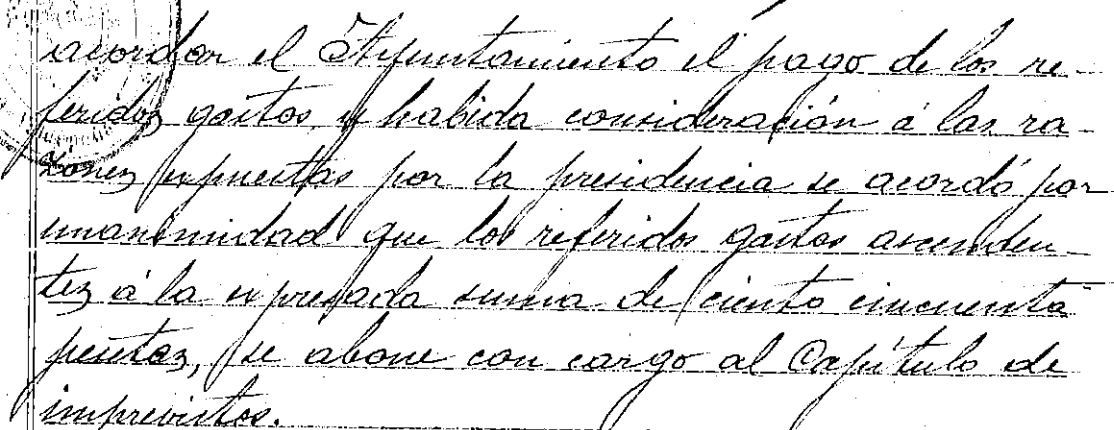 acordar el Ayuntamiento el pago de los re-
feridos gastos y habida consideración á las ra-
zones expuestas por la presidencia se acordó por
unanimidad que los referidos gastos ascenden-
tez á la expresada suma de ciento cincuenta
pesetas, se abone con cargo al Capítulo de
imprevistos.